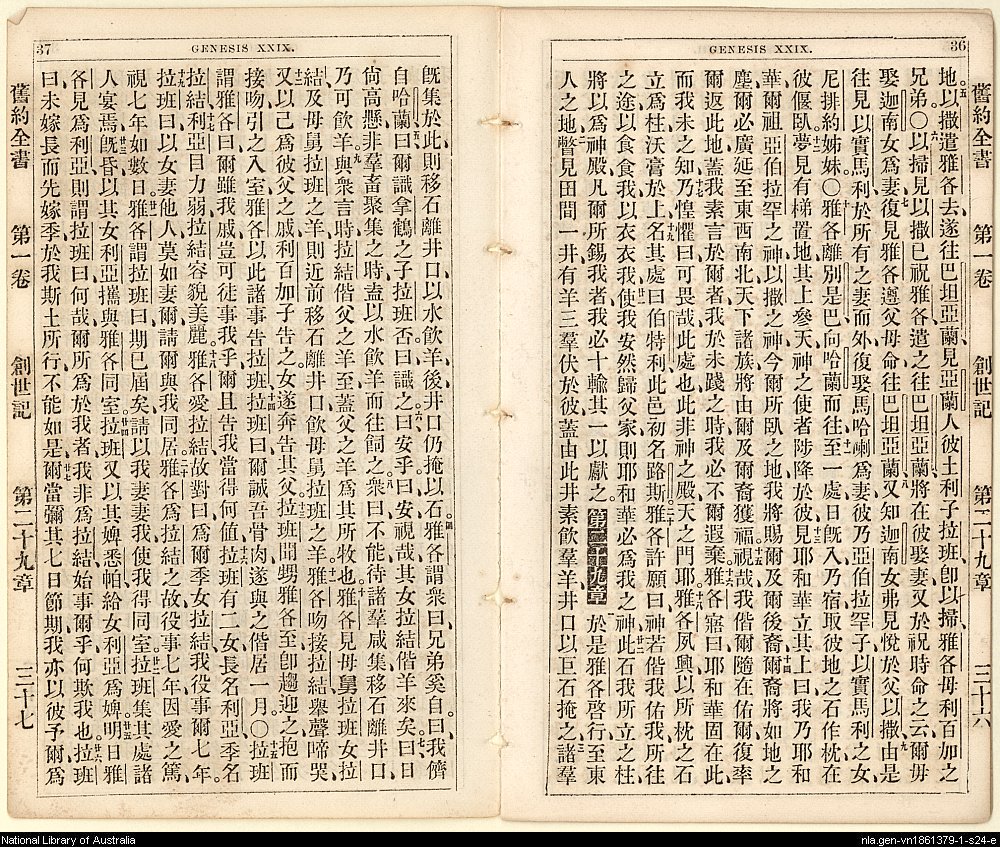 36
GENESIS XXIX.
舊約全書 第一卷 創世記 第二十九章 三十六
地以撒遣雅各去遂往巴坦亞蘭見亞蘭人彼土利子拉班卽以掃雅各母利百加之
兄弟〇以掃見以撒已祝雅各遣之往巴坦亞蘭將在彼娶妻又於祝時命之云爾毋
娶迦南女爲妻復見雅各遵父母命往巴坦亞蘭又知迦南女弗見悅於父以撒由是
往見以實馬利於所有之妻而外復娶馬哈喇爲妻彼乃亞伯拉罕子以實馬利之女
尼排約姊妹〇雅各離別是巴向哈蘭而往至一處日旣入乃宿取彼地之石作枕在
彼偃臥夢見有梯置地其上參天神之使者陟降於彼見耶和華立其上曰我乃耶和
華爾祖亞伯拉罕之神以撒之神今爾所臥之地我將賜爾及爾後裔爾裔將如地之
塵爾必廣延至東西南北天下諸族將由爾及爾裔獲福視哉我偕爾隨在佑爾復率
爾返此地蓋我素言於爾者我於未踐之時我必不爾遐棄雅各寤曰耶和華固在此
而我未之知乃惶懼曰可畏哉此處也此非神之殿天之門耶雅各夙興以所枕之石
立爲柱沃膏於上名其處曰伯特利此邑初名路斯雅各許願曰神若偕我佑我所往
之途以食食我以衣衣我使我安然歸父家則耶和華必爲我之神此石我所立之柱
將以爲神殿凡爾所錫我者我必十輸其一以獻之第二十九章於是雅各啓行至東
人之地瞥見田間一井有羊三羣伏於彼蓋由此井素飲羣羊井口以巨石掩之諸羣
37
GENESIS XXIX.
旣集於此則移石離井口以水飲羊後井口仍掩以石雅各謂衆曰兄弟奚自曰我儕
自哈蘭曰爾識拿鶴之子拉班否曰識之曰安乎曰安視哉其女拉結偕羊來矣曰日
尙高懸非羣畜聚集之時盍以水飲羊而往飼之衆曰不能待諸羣咸集移石離井口
乃可飲羊與衆言時拉結偕父之羊至蓋父之羊爲其所牧也雅各見母舅拉班女拉
結及母舅拉班之羊則近前移石離井口飲母舅拉班之羊雅各吻接拉結舉聲啼哭
又以己爲彼父之戚利百加子告之女遂奔告其父拉班聞甥雅各至卽趨迎之抱而
接吻引之入室雅各以此諸事告拉班拉班曰爾誠吾骨肉遂與之偕居一月〇拉班
謂雅各曰爾雖我戚豈可徒事我乎爾且告我當得何値拉班有二女長名利亞季名
拉結利亞目力弱拉結容貌美麗雅各愛拉結故對曰爲爾季女拉結我役事爾七年
拉班曰以女妻他人莫如妻爾請爾與我同居雅各爲拉結之故役事七年因愛之篤
視七年如數日雅各謂拉班曰期已屆矣請以我妻妻我使我得同室拉班集其處諸
人宴焉旣昏以其女利亞攜與雅各同室拉班又以其婢悉帕給女利亞爲婢明日雅
各見爲利亞則謂拉班曰何哉爾所爲於我者我非爲拉結始事爾乎何欺我也拉班
曰未嫁長而先嫁季於我斯土所行不能如是爾當彌其七日節期我亦以彼予爾爲
舊約全書 第一卷 創世記 第二十九章 三十七
National Library of Australia
nla.gen-vn1861379-1-s24-e